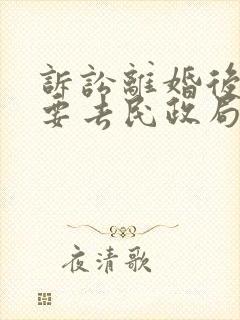 訴訟離婚後
要去民政局
夜清歌